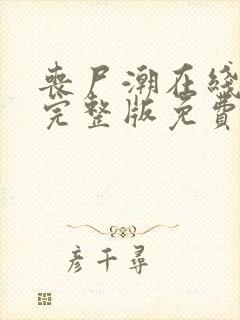 喪尸潮在綫
完整版免費
彦千尋